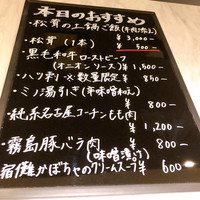 本日のおすすめ
・松茸の土鍋ご飯(牛肉が加え)
¥3,000-
・松茸(1本) ¥500-
・黒毛和牛ローストビーフ
(オニオンソース) ¥1,500-
・ハツ刺し※数量限定 ¥850-
・ミノ湯引き(辛味噌和え)
¥800-
・純系名古屋コーチンもも肉
¥1,200-
・霧島豚バラ肉 ¥800-
(味噌漬け)
・宿儺かぼちゃのクリームスープ ¥600-